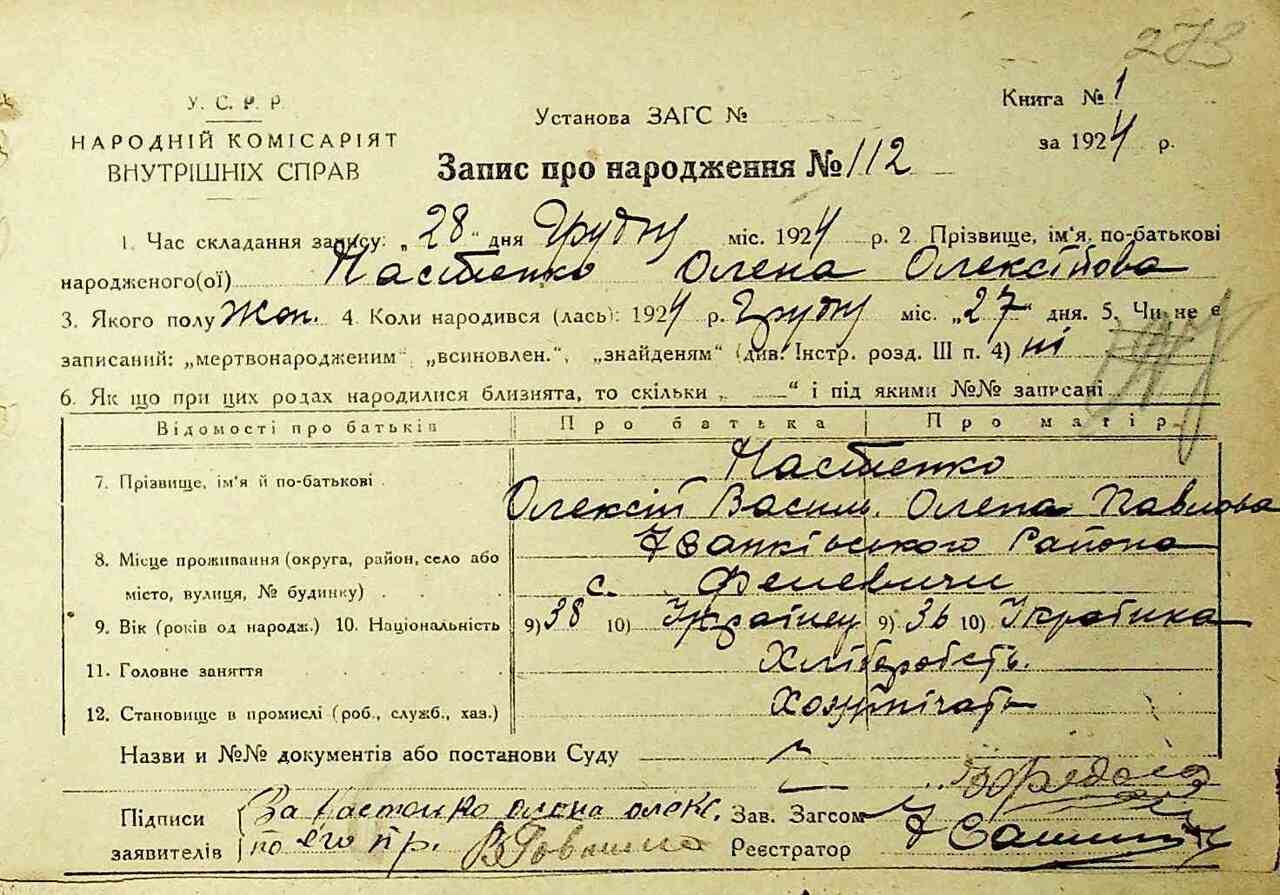 273
У. С. Р. Р.
НАРОДНІЙ КОМІСАРІЯТ
ВНУТРІШНІХ СПРАВ
Установа ЗАГС №
Книга № 1
за 1924 р.
Запис про народження № 112
1. Час складання запису: „28“ дня Грудня міс. 1924 р. 2. Прізвище, ім‘я, по-батькові
народженого(ої) Настенко Олена Олексіїова
3. Якого полу Жон. 4. Коли народився (лась): 1924 р. Грудня міс. „27“ дня. 5. Чи не є
записаний: „мертвонародженим“, „всиновлен.“, „знайденям“ (див. Інстр. розд. III п. 4) ні
6. Як що при цих родах народилися близнята, то скільки „ “ і під якими №№ записані
Відомості про батьків Про батька Про матір
7. Прізвище, ім‘я й по-батькові Настенко
Олексій Василь. Олена Павлова
8. Місце проживання (округа, район, село або Іванківського Района
місто, вулиця, № будинку) с. Феневичи
9. Вік (років од народж.) 10. Національність 9) 38 10) Українец 9) 36 10) Українка
11. Головне заняття Хліборобсть.
12. Становище в промислі (роб., служб., хаз.)
Назви и №№ документів або постанови Суду
Підписи За Настенко олена олекс. Зав. Загсом
заявителів по его пр. Реєстратор